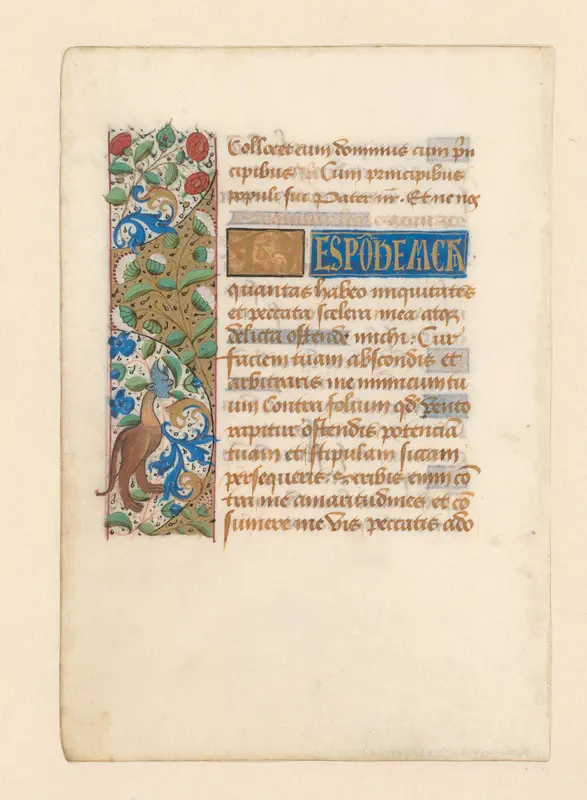 Collocet eum dominus cum prin
cipibus Cum principibus
populi sui Pater nr̄. Et ne nos
ESPŌDE MICH
quantas habeo iniquitates
et peccata scelera mea atqꝫ
delicta ostende michi. Cur
faciem tuam abscondis et
arbitraris me inimicum tu
um Contra folium qd̄ vento
rapitur ostendis potenciā
tuam et stipulam siccam
persequeris Scribis enim cō
tra me amaritudines et cō
sumere me vis peccatis ado